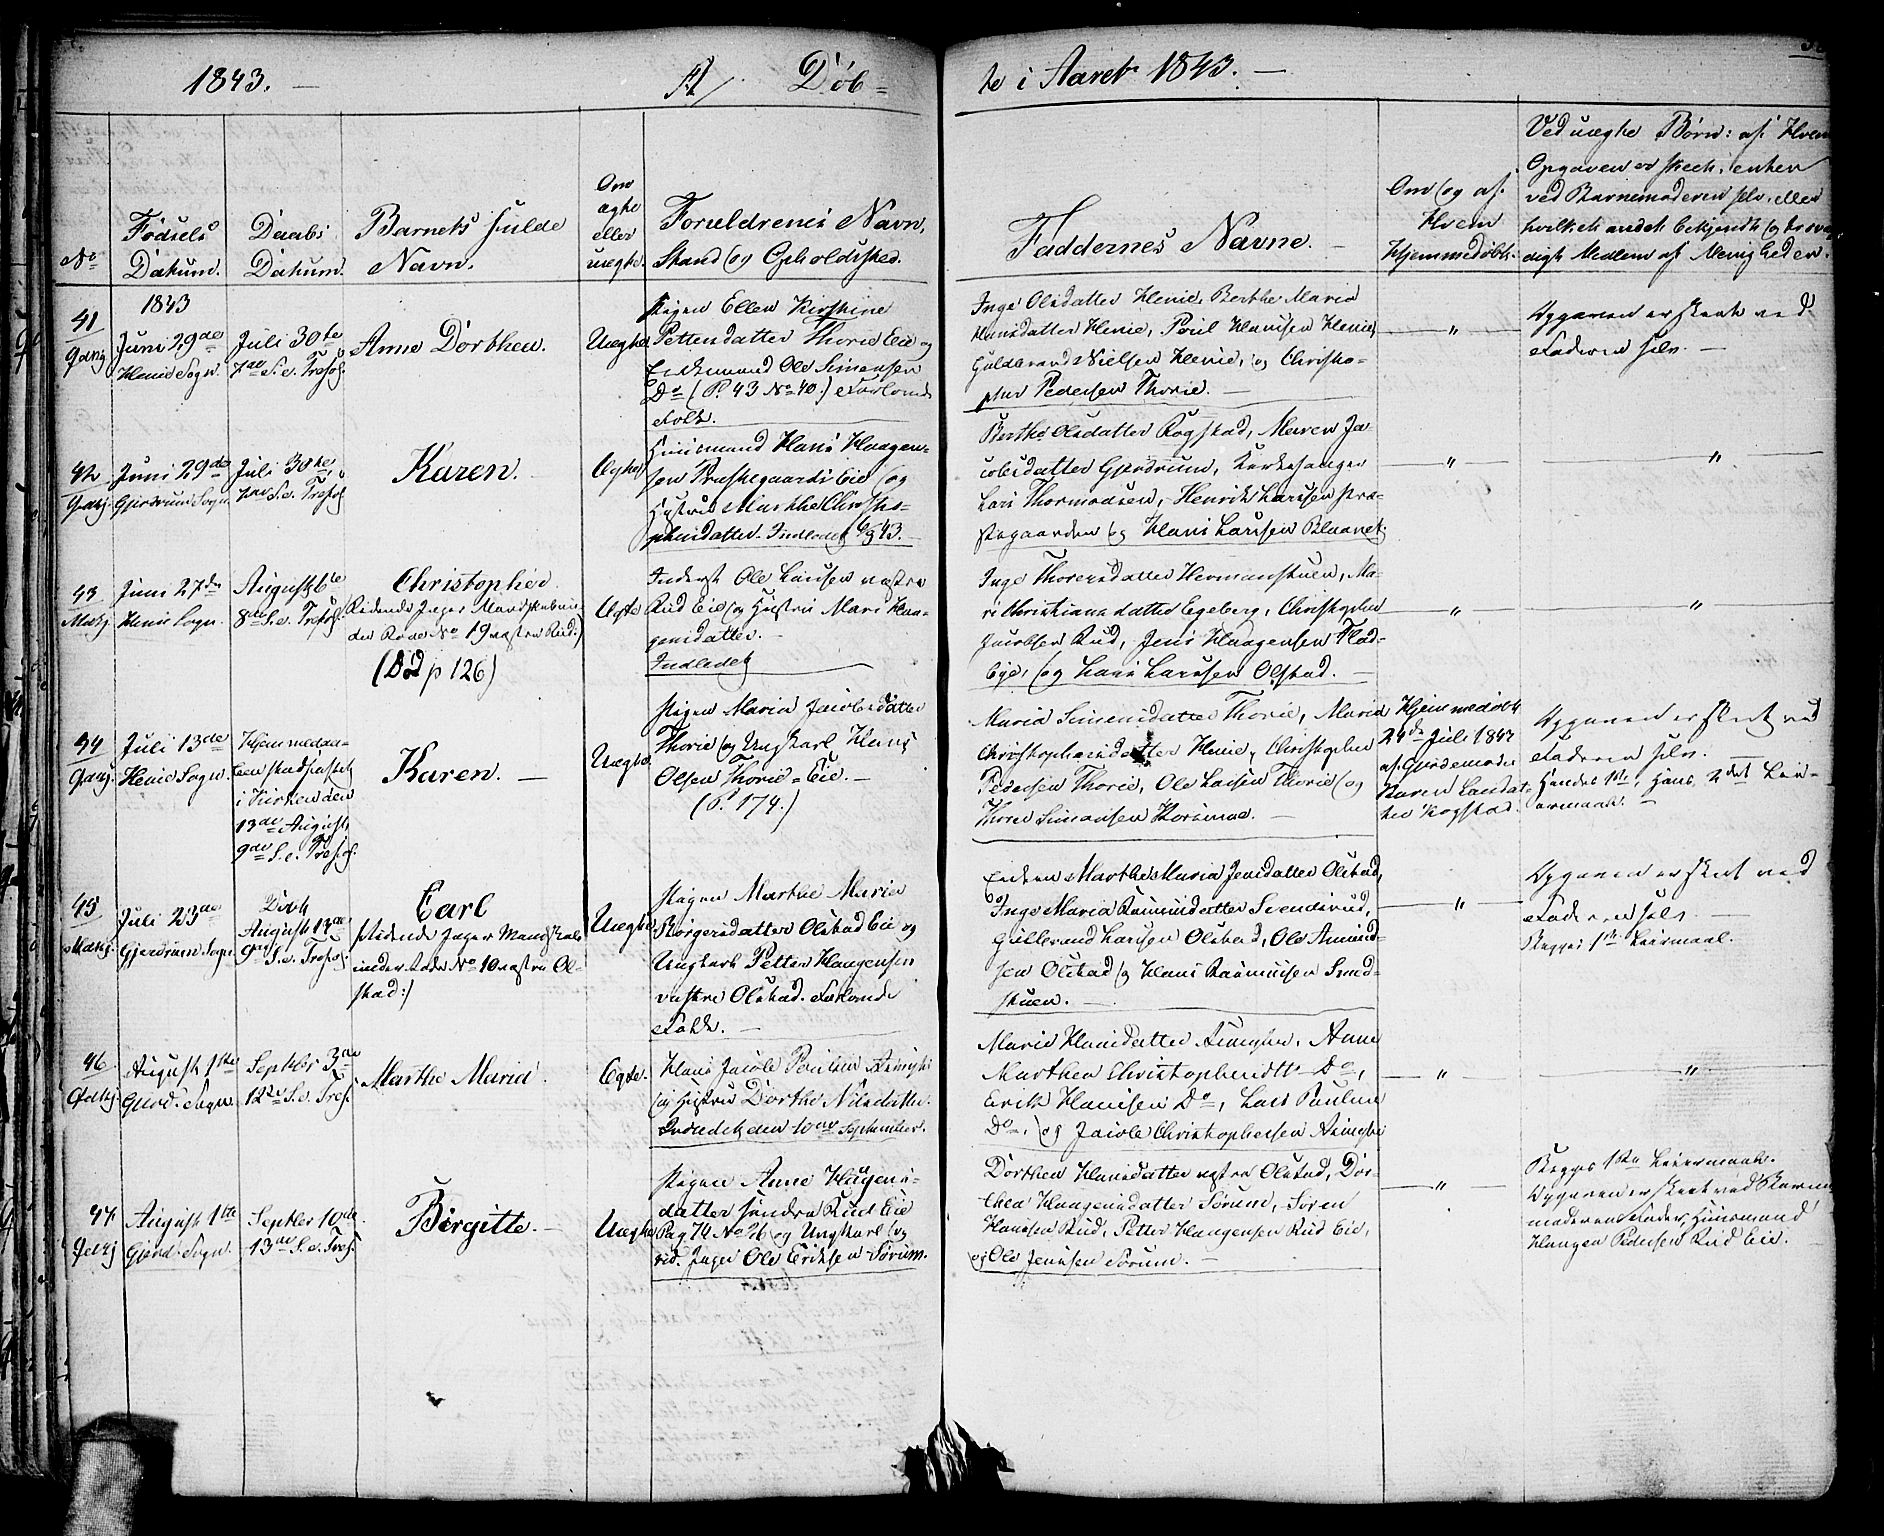 1843. — A/ Døb=
te i Aaret 1843. —
No
Fødsels Datum.
Daabs Datum.
Barnets fulde Navn.
Om ægte eller uægte.
Forældrenes Navn, Stand og Opholdssted.
Faddernes Navne. —
Om og af Hvem Hjemmedøbt.
Ved uægte Børn: af Hvem
Opgaven er skeet, enten
ved Barnemoderen selv, eller
hvilket andet bekjendt og
digt Medlem af Menigheden.
41
1843
Juni 29de
Henie Sogn.
Juli 30te
7de S. e. Trefol.
Anne Dorthea.
Uægte
Pigen Ellen Kirstine
Pettersdatter Thorie Eie og
Enkemand Ole Simensen
Do (P. 43 No 40.) Forlovede
Folk.
Inge Olsdatter Henie, Berthe Maria
Hansdatter Henie, Poul Hansen Henie,
Guldbrand Nielsen Henie, og Christo-
pher Pedersen Thorie. —
"
Opgaven er skeet ved
Faderen selv. —
42
Juni 29de
Gjerdrum Sogn.
Juli 30te,
7de S. e. Trefol.
Karen.
Ægte
Huusmand Hans Haagen-
sen Præstegaards Eie og
Hustru Marthe Christo-
phersdatter. Indledet 43.
Berthe Olsdatter Rogstad, Maren Ja-
cobsdatter Gjerdrum, Kirkesanger
Lars Thormodsen, Henrik Larssen Præ-
stegaarden og Hans Larssen
"
"
43
Juni 27de
Henie Sogn.
August 6te
8de S. e. Trefol.
Christopher.
Ridende Jæger Mandskab un-
der Rode No 19 vestre Rud:)
(Død p 126)
Ægte
Inderst Ole Larssen vestre
Rud Eie og Hustru Mari Haa-
gensdatter. —
Indledet
Inge Thoresdatter Hermanstuen, Ma-
ri Christiansdatter Egeberg, Christopher
Jacobsen Rud, Jens Haagensen Flad-
Eje, og Lars Larssen Olstad. —
"
"
44
Juli 13de
Henie Sogn.
Hjemmedaa-
ben stadfæstet
i Kirken den
13de August,
9de S. e. Trefol.
Karen. —
Uægte
Pigen Maria Jacobsdatter
Thorie og Ungkarl Hans
Olsen Thorie-Eie. —
(P. 174.)
Maria Simensdatter Thorie, Maria
Christophersdatter Henie, Christopher
Pedersen Thorie, Ole Larsen Thorie og
Thore Simensen Thorsmoe. —
Hjemmedøbt
24de Juli 1843
af Gjordemoder
Karen Larsdat-
ter Rogstad.
Opgaven er skeet ved
Faderen selv. —
Hendes 1ste, Hans 2det Lei-
ermaal. —
45
Juli 23de
Gjerdrum Sogn.
Døbt
August 13de
9de S. e. Trefol.
Carl
Ridende Jæger Mandskab
under Rode No 10 vestre Ol-
stad:)
Uægte
Pigen Marthe Maria
Børgersdatter Olstad Eie og
Ungkarl Petter Haagensen
vestre Olstad. Forlovede
Folk. —
Enken Marthe Maria Jensdatter Olstad,
Inge Maria Rasmusdatter Svendsrud,
Gulbrand Larssen Olstad, Ole Amund-
sen Olstad og Hans Rasmussen Smed-
stuen. —
"
Opgaven er skeet ved
Faderen selv. —
Begges 1ste Leiermaal.
46.
August 1ste
Gjerd. Sogn.
Septber 3de
12te S. e. Tref.
Marthe Maria.
Ægte.
Hans Jacob Poulsen
og Hustru Dorthe Nilsdatter.
Indledet den 10de September.
Marie Hansdatter, Anne
Marthea Christophersdtt Do,
Erik Hansen Do, Lars Paulsen
Do, og Jacob Christophersen
"
"
47.
August 1ste
Gjerd. Sogn.
Septber 10de
13de S. e. Tref.
Birgitte. —
Uægte
Pigen Anne Haagens-
datter søndre Rud Eie
Pag 74 No 26 og Ungkarl og
rid. Jæger Ole Eriksen Sørum.
Dorthea Hansdatter vestre Olstad, Dor-
thea Haagensdatter Sørum, Søren
Hansen Rud, Petter Haagensen Rud Eie,
og Ole Jensen Sørum. —
"
Begges 1ste Leiermaal.
Opgaven er skeet ved Barne-
moderens Fader, Huusmand
Haagen Pedersen Rud Eie.